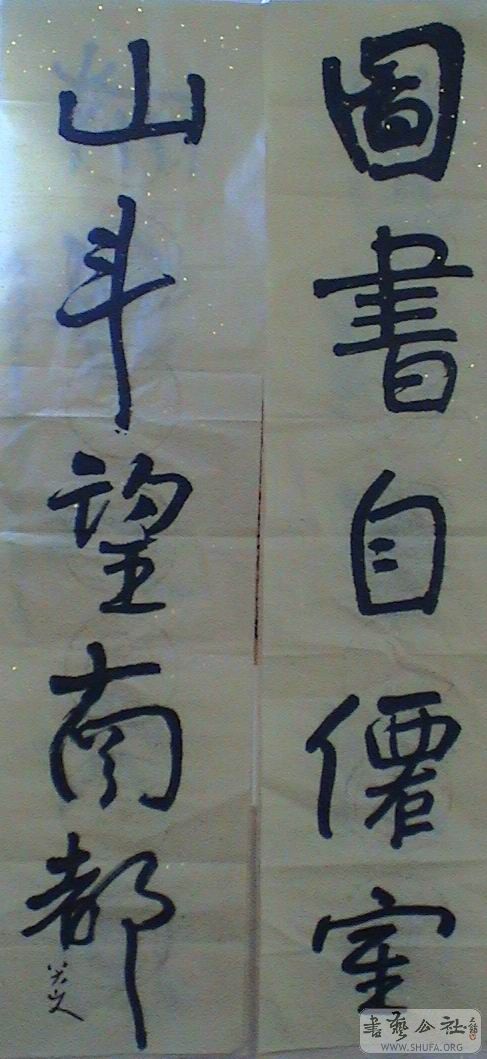 圖書自僊室
山斗望南都
書藝公社
WWW.SHUFA.ORG